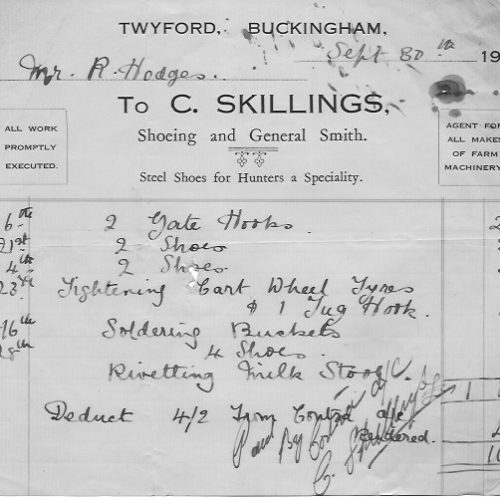 TWYFORD, BUCKINGHAM,
Sept 30th 19
Mr. R. Hodges.
To C. SKILLINGS,
Shoeing and General Smith.
Steel Shoes for Hunters a Speciality.
ALL WORK
PROMPTLY
EXECUTED.
AGENT FOR
ALL MAKES
OF FARM
MACHINERY
6th 2 Gate Hooks.
21st 2 Shoes
4th 2 Shoes
23rd Tightening Cart Wheel Tyres
& 1 Tug Hook.
16th Soldering Buckets
28th 4 Shoes.
Rivetting Milk Stool 1
Deduct 4/2 From Contra a/c
Rendered.
By Contra a/c